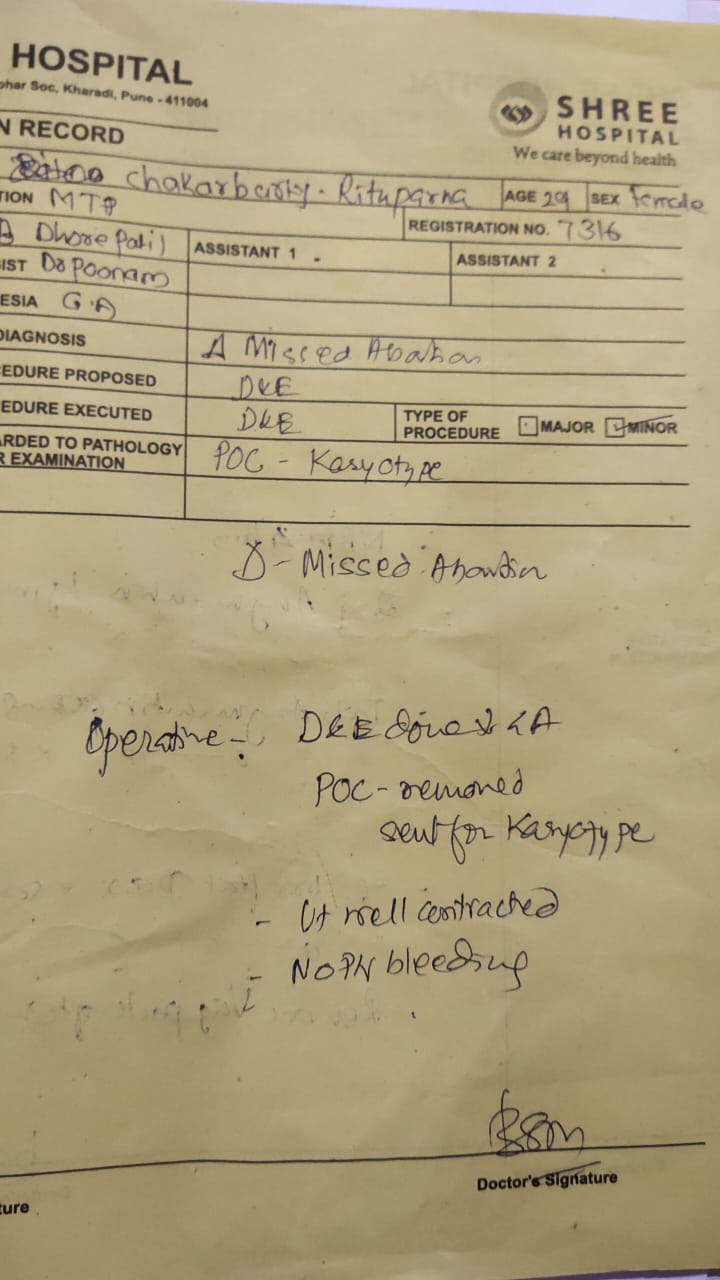 HOSPITAL
ohar Soc, Kharadi, Pune - 411004
SHREE
HOSPITAL
We care beyond health
N RECORD
Chakarborty. Rituparna AGE 29 SEX Female
TION MTP REGISTRATION NO. 7316
Dhore Patil ASSISTANT 1 ASSISTANT 2
IST Dr Poonam
ESIA G.A
DIAGNOSIS Δ Missed Abortion
EDURE PROPOSED D&E
EDURE EXECUTED D&E TYPE OF PROCEDURE MAJOR MINOR
ARDED TO PATHOLOGY POC - Karyotype
R EXAMINATION
Δ - Missed Abortion
Operative - D&E done
POC - removed
sent for Karyotype
- Ut well contracted
- No PV bleeding
Doctor's Signature
ture